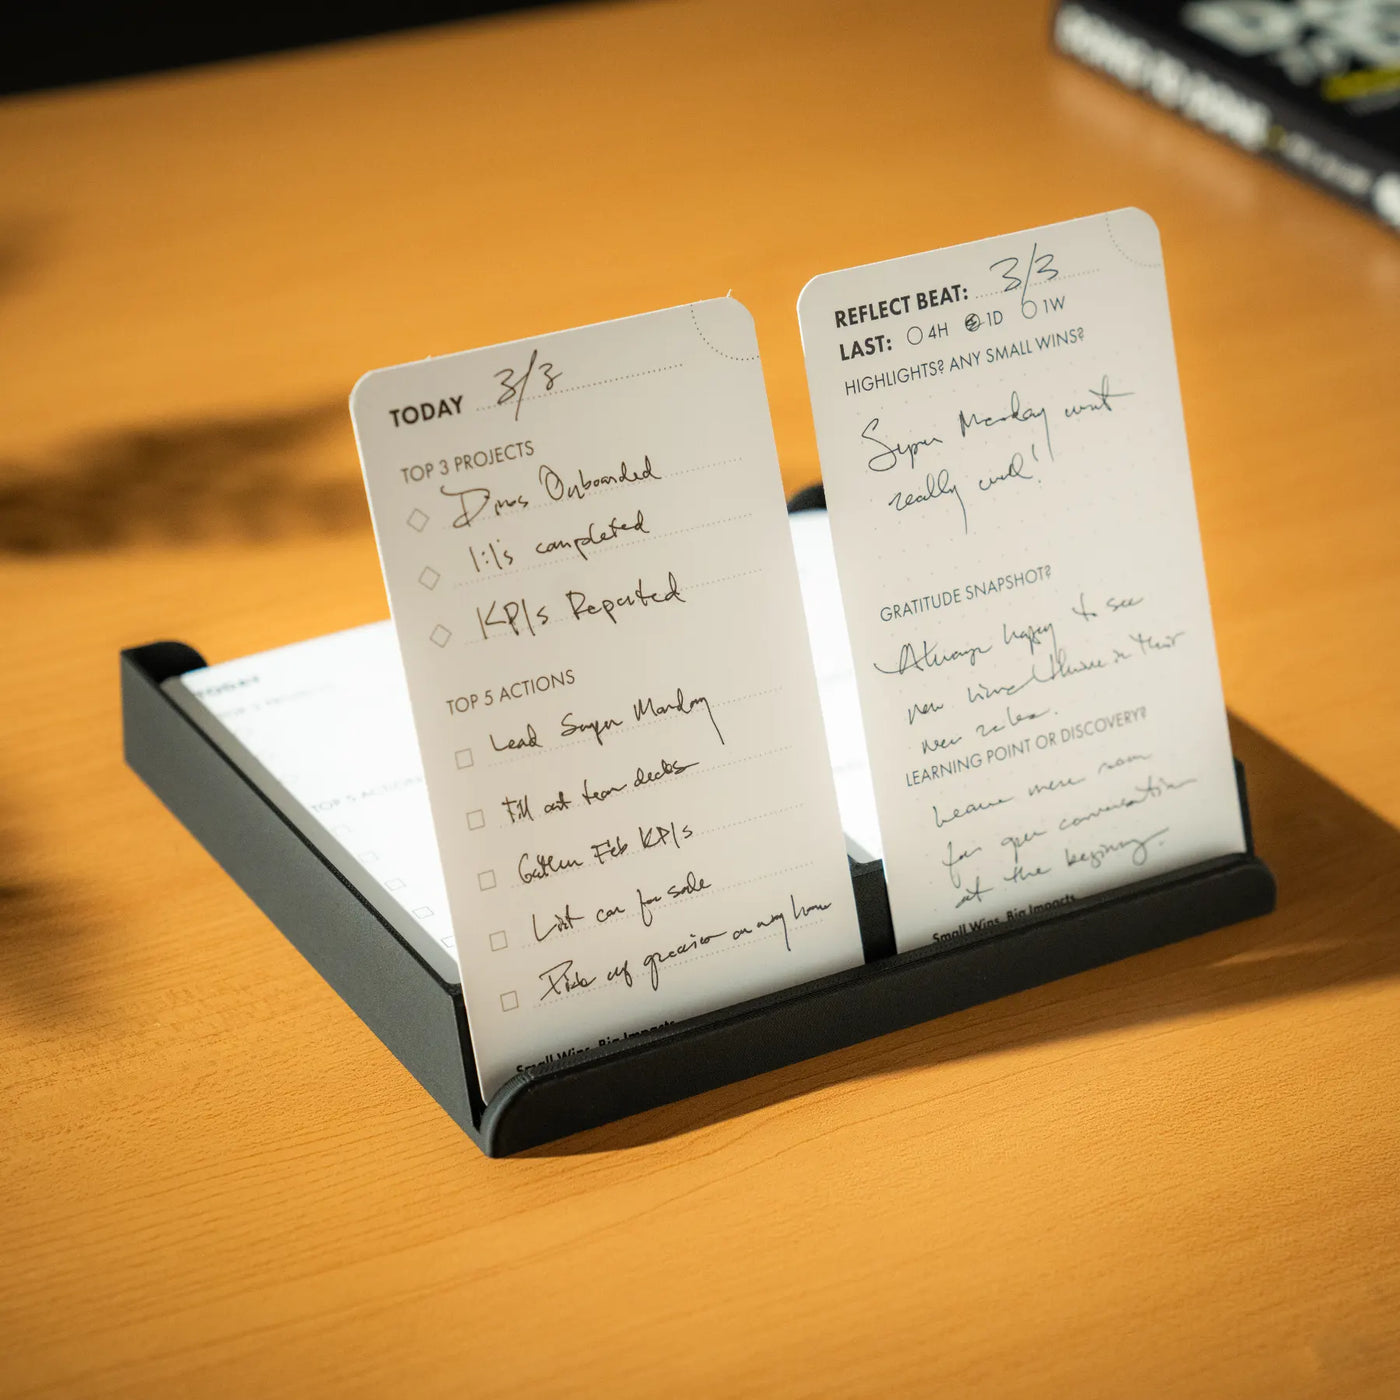 TODAY 3/3
TOP 3 PROJECTS
Onboarded
1:1's completed
KPI's Reported
TOP 5 ACTIONS
Lead Super Monday
Fill out team decks
Gather Feb KPI's
List car for sale
Pick up groceries on way home
Small Wins, Big Impacts
REFLECT BEAT: 3/3
LAST: 4H 1D 1W
HIGHLIGHTS? ANY SMALL WINS?
Super Monday went
really well!
GRATITUDE SNAPSHOT?
Always happy to see
new thrive in their
new roles.
LEARNING POINT OR DISCOVERY?
Leave more room
for open conversation
at the beginning.
Small Wins, Big Impacts
TODAY
TOP 5 ACTIONS